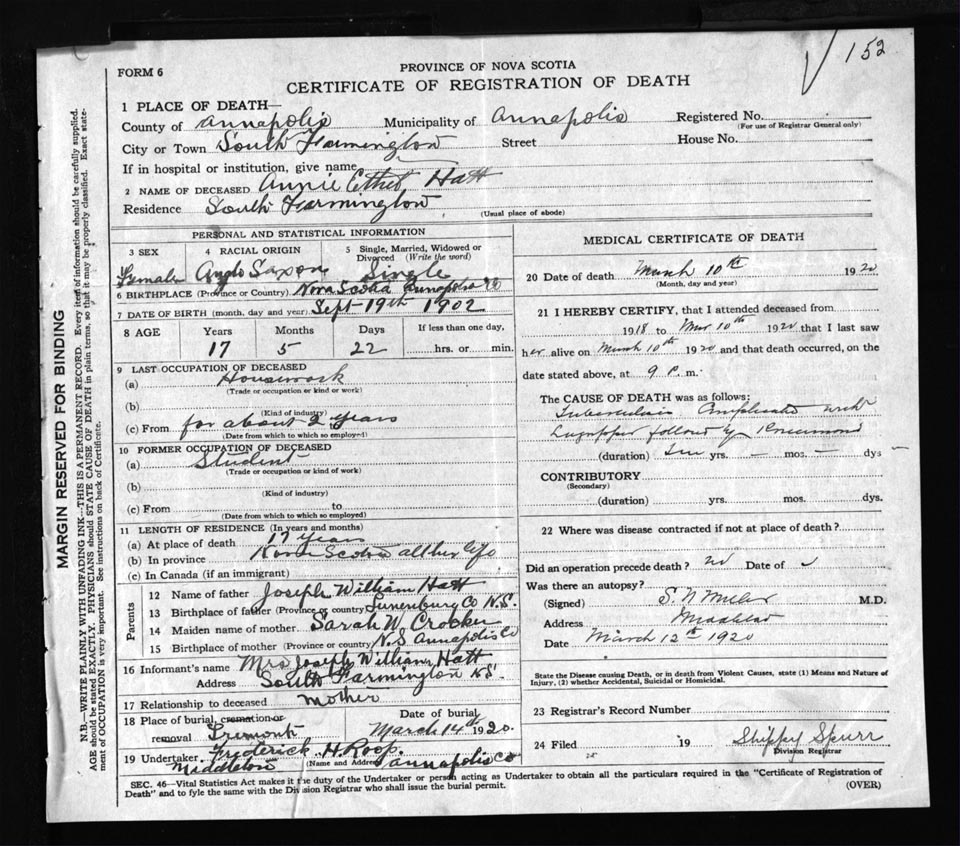 152
FORM 6
PROVINCE OF NOVA SCOTIA
CERTIFICATE OF REGISTRATION OF DEATH
1 PLACE OF DEATH—
County of Annapolis Municipality of Annapolis Registered No.
(For use of Registrar General only)
City or Town South Farmington Street House No.
If in hospital or institution, give name
2 NAME OF DECEASED Annie Ethel Hatt
Residence South Farmington
(Usual place of abode)
PERSONAL AND STATISTICAL INFORMATION
3 SEX 4 RACIAL ORIGIN 5 Single, Married, Widowed or Divorced (Write the word)
Female Anglo Saxon Single
6 BIRTHPLACE (Province or Country) Nova Scotia Annapolis Co
7 DATE OF BIRTH (month, day and year) Sept 19th 1902
8 AGE Years Months Days If less than one day,
17 5 22 hrs. or min.
9 LAST OCCUPATION OF DECEASED
(a) Housework
(Trade or occupation or kind of work)
(b)
(Kind of industry)
(c) From for about 2 years
(Date from which to which so employed)
10 FORMER OCCUPATION OF DECEASED
(a) Student
(Trade or occupation or kind of work)
(b)
(Kind of industry)
(c) From to
(Date from which to which so employed)
11 LENGTH OF RESIDENCE (In years and months)
(a) At place of death 17 years
(b) In province Nova Scotia all her life
(c) In Canada (if an immigrant)
Parents
12 Name of father Joseph William Hatt
13 Birthplace of father (Province or country) Lunenburg Co N.S.
14 Maiden name of mother Sarah W. Crocker
15 Birthplace of mother (Province or country) N.S Annapolis Co
16 Informant's name Mrs Joseph William Hatt
Address South Farmington N.S.
17 Relationship to deceased Mother
18 Place of burial, cremation or removal Tremont Date of burial March 14th 1920.
19 Undertaker Frederick H. Roop.
Middleton (Name and Address) Annapolis Co
MEDICAL CERTIFICATE OF DEATH
20 Date of death March 10th 1920
(Month, day and year)
21 I HEREBY CERTIFY, that I attended deceased from
1918 to Mar 10th 1920 that I last saw
her alive on March 10th 1920 and that death occurred, on the
date stated above, at 9 P. m.
The CAUSE OF DEATH was as follows:
Tuberculosis Complicated with
Lagrippe follow by Pneumonia
(duration) yrs. — mos. — dys —
CONTRIBUTORY
(Secondary)
(duration) yrs. mos. dys.
22 Where was disease contracted if not at place of death?
Did an operation precede death? no Date of
Was there an autopsy?
(Signed) M.D.
Address
Date March 12th 1920
State the Disease causing Death, or in death from Violent Causes, state (1) Means and Nature of
Injury, (2) whether Accidental, Suicidal or Homicidal.
23 Registrar's Record Number
24 Filed 19 Shippy Spurr
Division Registrar
SEC. 46—Vital Statistics Act makes it the duty of the Undertaker or person acting as Undertaker to obtain all the particulars required in the "Certificate of Registration of
Death" and to fyle the same with the Division Registrar who shall issue the burial permit. (OVER)
MARGIN RESERVED FOR BINDING
N.B.—WRITE PLAINLY WITH UNFADING INK—THIS IS A PERMANENT RECORD. Every item of information should be carefully supplied.
AGE should be stated EXACTLY. PHYSICIANS should STATE CAUSE OF DEATH in plain terms, so that it may be properly classified. Exact state-
ment of OCCUPATION is very important. See instructions on back of Certificate.